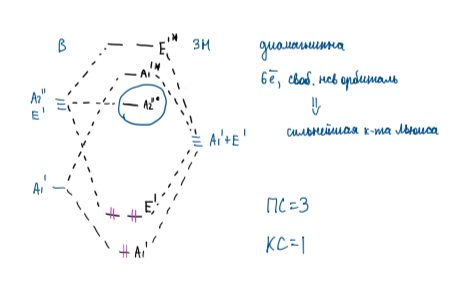 B
E'*
3H
A1'*
A2''
E'
A2''*
A1'+E'
A1'
E'
A1'
диамагнитна
6ē, своб. нсв орбиталь
⇓
сильнейшая к-та Льюиса
ПС=3
КС=1